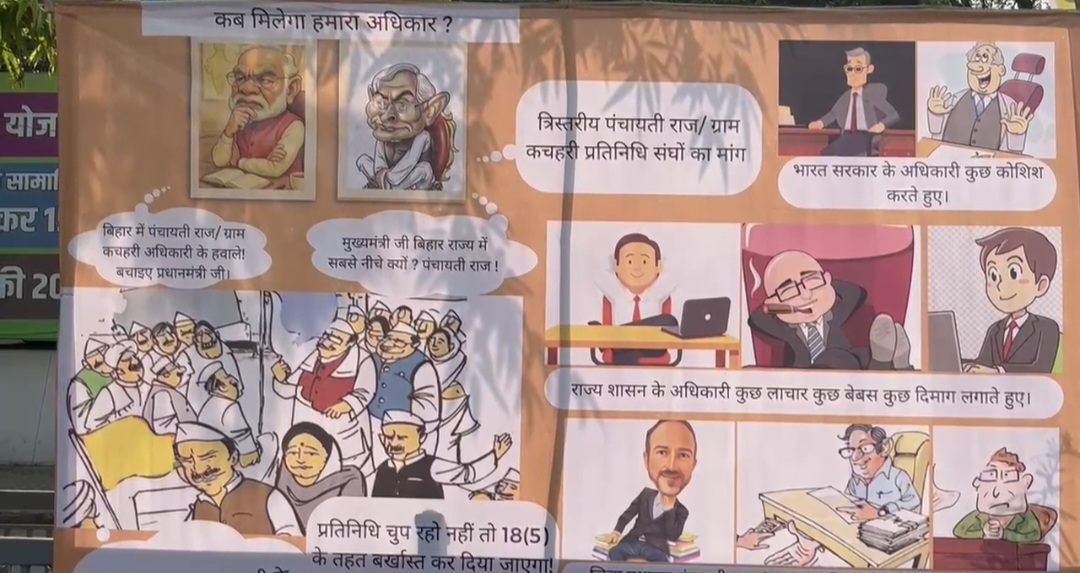 कब मिलेगा हमारा अधिकार ?
त्रिस्तरीय पंचायती राज/ ग्राम
कचहरी प्रतिनिधि संघों का मांग
भारत सरकार के अधिकारी कुछ कोशिश
करते हुए।
बिहार में पंचायती राज/ ग्राम
कचहरी अधिकारी के हवाले!
बचाइए प्रधानमंत्री जी।
मुख्यमंत्री जी बिहार राज्य में
सबसे नीचे क्यों ? पंचायती राज !
राज्य शासन के अधिकारी कुछ लाचार कुछ बेबस कुछ दिमाग लगाते हुए।
प्रतिनिधि चुप रहो नहीं तो 18(5)
के तहत बर्खास्त कर दिया जाएगा!
योज
सामा
कर 1
की 20